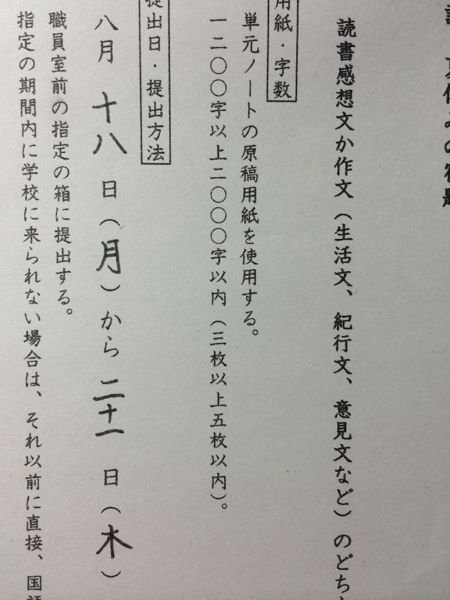 夏休みの宿題
読書感想文か作文（生活文、紀行文、意見文など）のどち
用紙・字数
単元ノートの原稿用紙を使用する。
一二〇〇字以上二〇〇〇字以内（三枚以上五枚以内）。
提出日・提出方法
八月 十八 日（月）から 二十一 日（木）
職員室前の指定の箱に提出する。
指定の期間内に学校に来られない場合は、それ以前に直接、国語